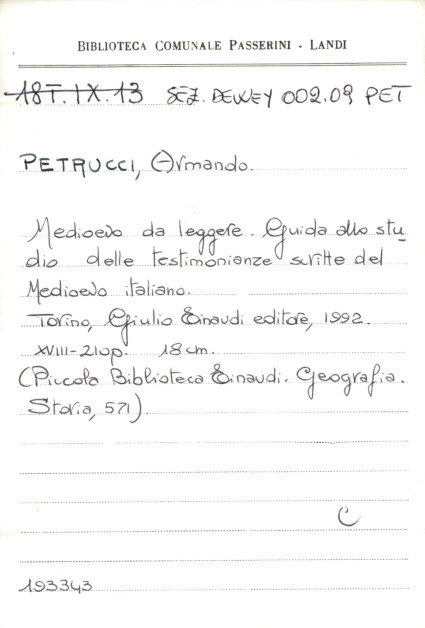 BIBLIOTECA COMUNALE PASSERINI - LANDI
18T.IX.13 SEZ. DEWEY 002.09 PET
PETRUCCI, Armando.
Medioevo da leggere. Guida allo stu
dio delle testimonianze scritte del
Medioevo italiano.
Torino, Giulio Einaudi editore, 1992.
XVIII-210p. 18 cm.
(Piccola Biblioteca Einaudi. Geografia.
Storia, 571).
C
193343